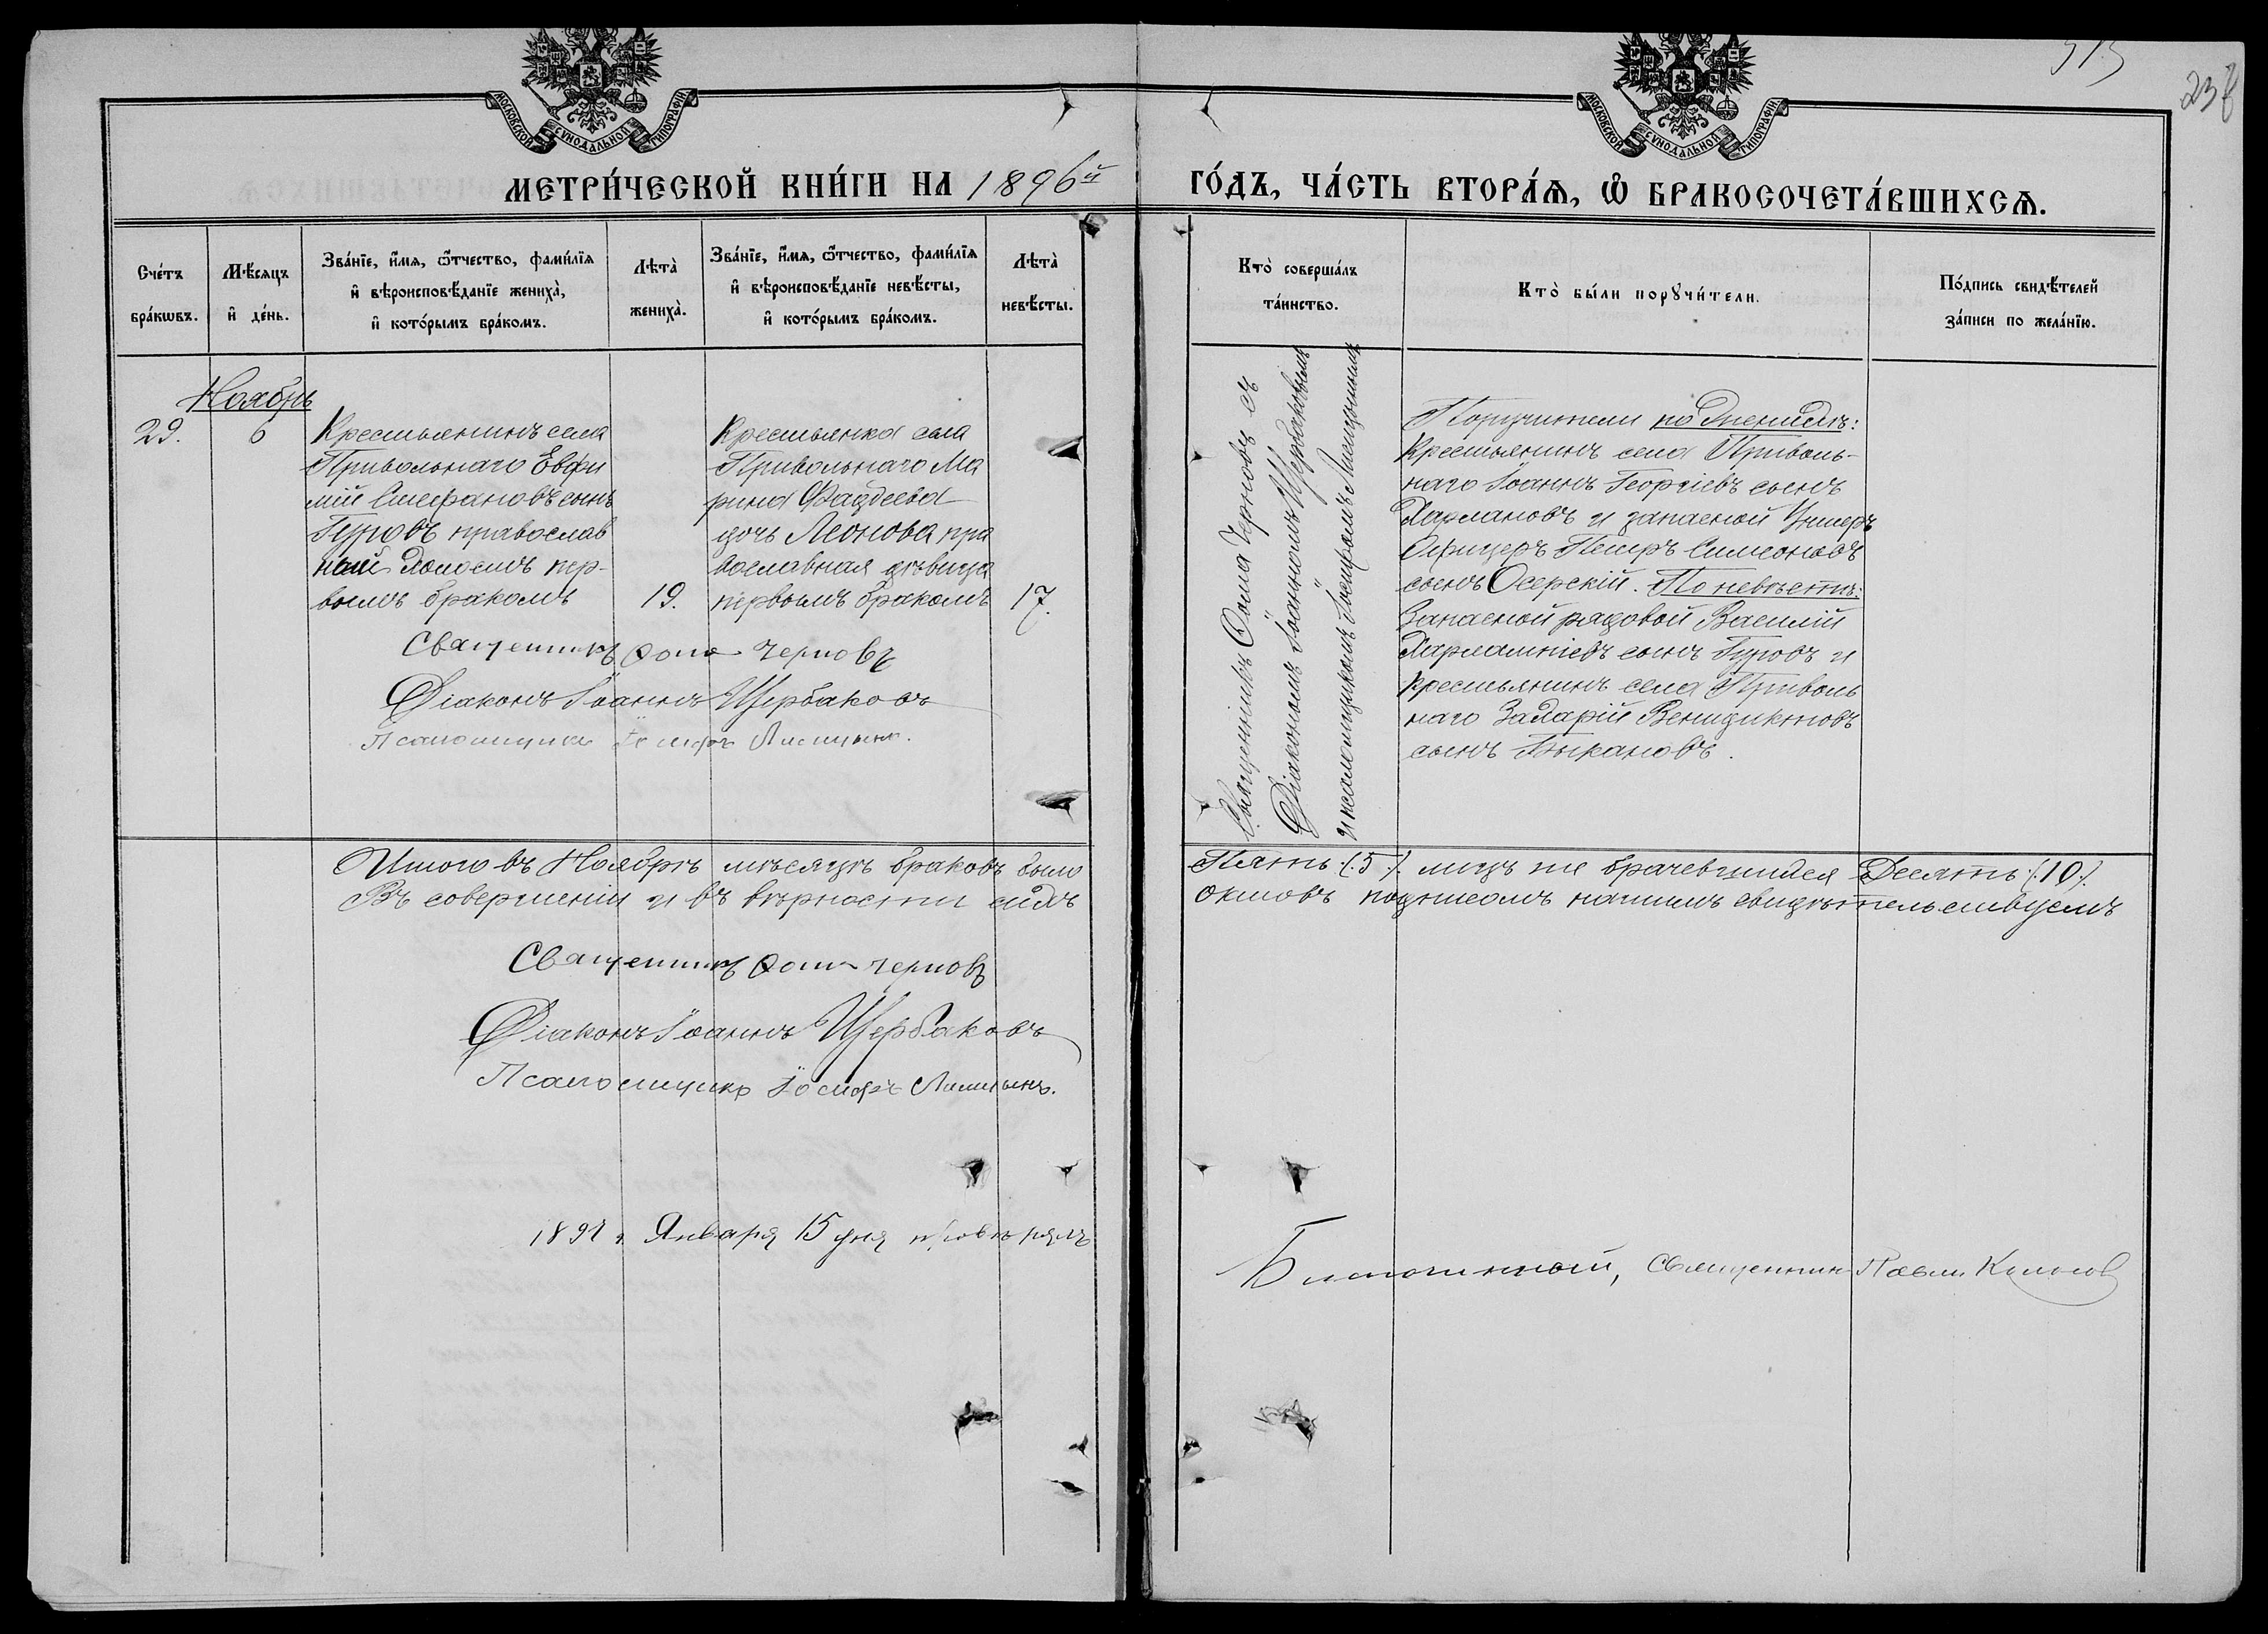 515
238
МОСКОВСКОЙ СѴНОДАЛЬНОЙ ТИПОГРАФІИ
МОСКОВСКОЙ СѴНОДАЛЬНОЙ ТИПОГРАФІИ
МЕТРИ́ЧЕСКОЙ КНИ́ГИ НА 1896й
ГО́ДЪ, ЧА́СТЬ ВТОРА́Ѧ, Ѽ БРАКОСОЧЕТА́ВШИХСѦ.
Сче́тъ бра́кѡвъ.
Мѣ́сяцъ и҆ де́нь.
Зва́нїе, и҆́мя, ѻ҆́тчество, фами́лїя
и҆ вѣроисповѣ́данїе жениха̀,
и҆ кото́рымъ бра́комъ.
Лѣта̀ жениха̀.
Зва́нїе, и҆́мя, ѻ҆́тчество, фами́лїя
и҆ вѣроисповѣ́данїе невѣ́сты,
и҆ кото́рымъ бра́комъ.
Лѣта̀ невѣ́сты.
Кто̀ соверша́лъ
та́инство.
Кто̀ бы́ли порꙋчи́тели.
По́дпись свидѣ́телей
за́писи по жела́нїю.
Ноябрь
29.
6
Крестьянинъ села
Привольнаго Евфи
мій Стефановъ сынъ
Гуровъ православ
ный холостъ пер-
вымъ бракомъ
19.
Крестьянка села
Привольнаго Ма
рина Фаддеева
дочь Леонова пра
вославная дѣвица
первымъ бракомъ
17.
Священникъ Ѳома Черновъ
Діаконъ Іоаннъ Щербаковъ
Псаломщикъ Іосифъ
Священникъ Ѳома Черновъ съ
Діакономъ Іоанномъ Щербаковымъ
и псаломщикомъ Іосифомъ
Поручители по женихѣ:
Крестьянинъ села Приволь-
наго Іоаннъ Георгіевъ сынъ
Харлановъ и запасной Унтеръ
Офицеръ Петръ Симеоновъ
сынъ Осерскій. По невѣстѣ:
Запасной рядовой Василій
Харлампіевъ сынъ Гуровъ и
крестьянинъ села Приволь
наго Захарій Венидиктовъ
сынъ Быкановъ.
Итого въ Ноябрѣ мѣсяцѣ браковъ было
Пять (.5.) лицъ же брачевшихся Десять (.10.)
Въ совершеніи и въ вѣрности сихъ
актовъ подписомъ нашимъ свидѣтельствуемъ
Священникъ Ѳома Черновъ
Діаконъ Іоаннъ Щербаковъ
Псаломщикъ Іосифъ
1897 г. Января 15 дня провѣрялъ
Благочинный, священникъ Павелъ